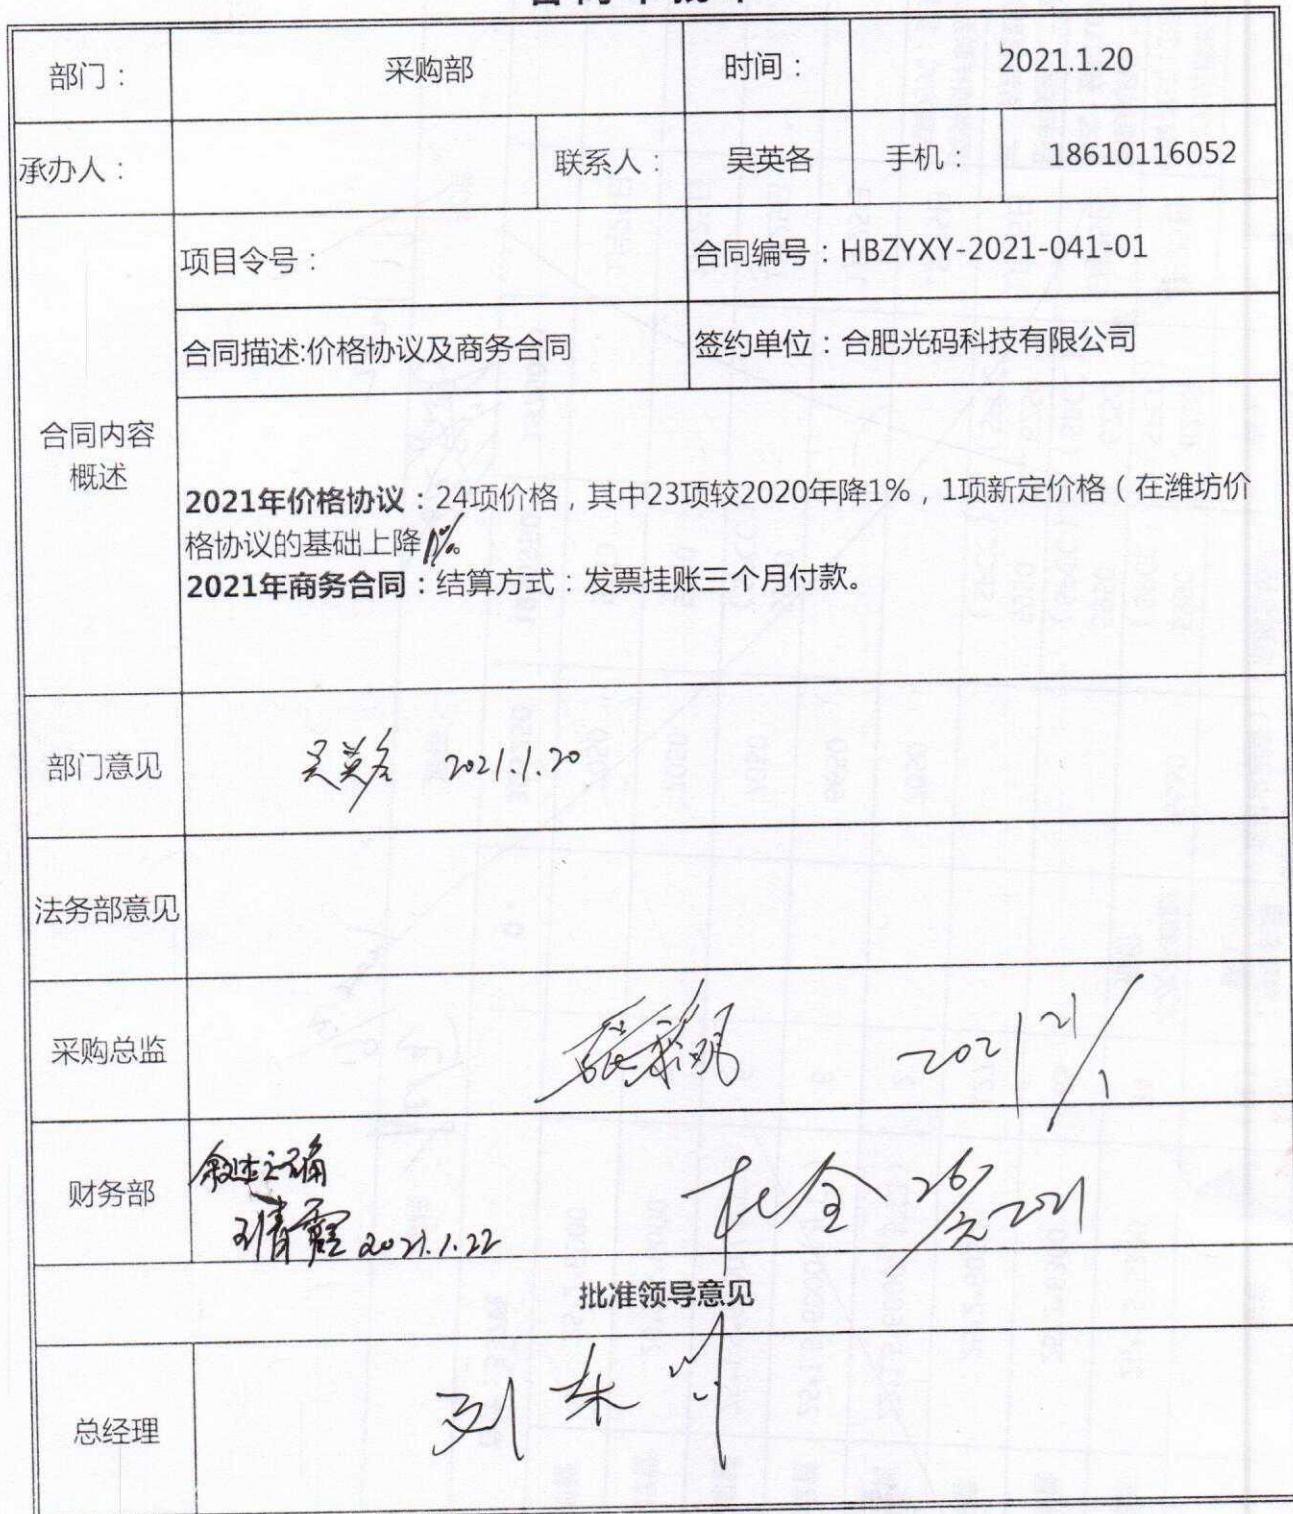 部门：
采购部
时间：
2021.1.20
承办人：
联系人：
吴英各
手机：
18610116052
合同内容
概述
项目令号：
合同编号：HBZYXY-2021-041-01
合同描述:价格协议及商务合同
签约单位：合肥光码科技有限公司
2021年价格协议：24项价格，其中23项较2020年降1%，1项新定价格（在潍坊价
格协议的基础上降1%
2021年商务合同：结算方式：发票挂账三个月付款。
部门意见
吴英各 2021.1.20
法务部意见
采购总监
2021 21/1
财务部
2021.1.22
杜全 26/元2021
批准领导意见
总经理
刘东